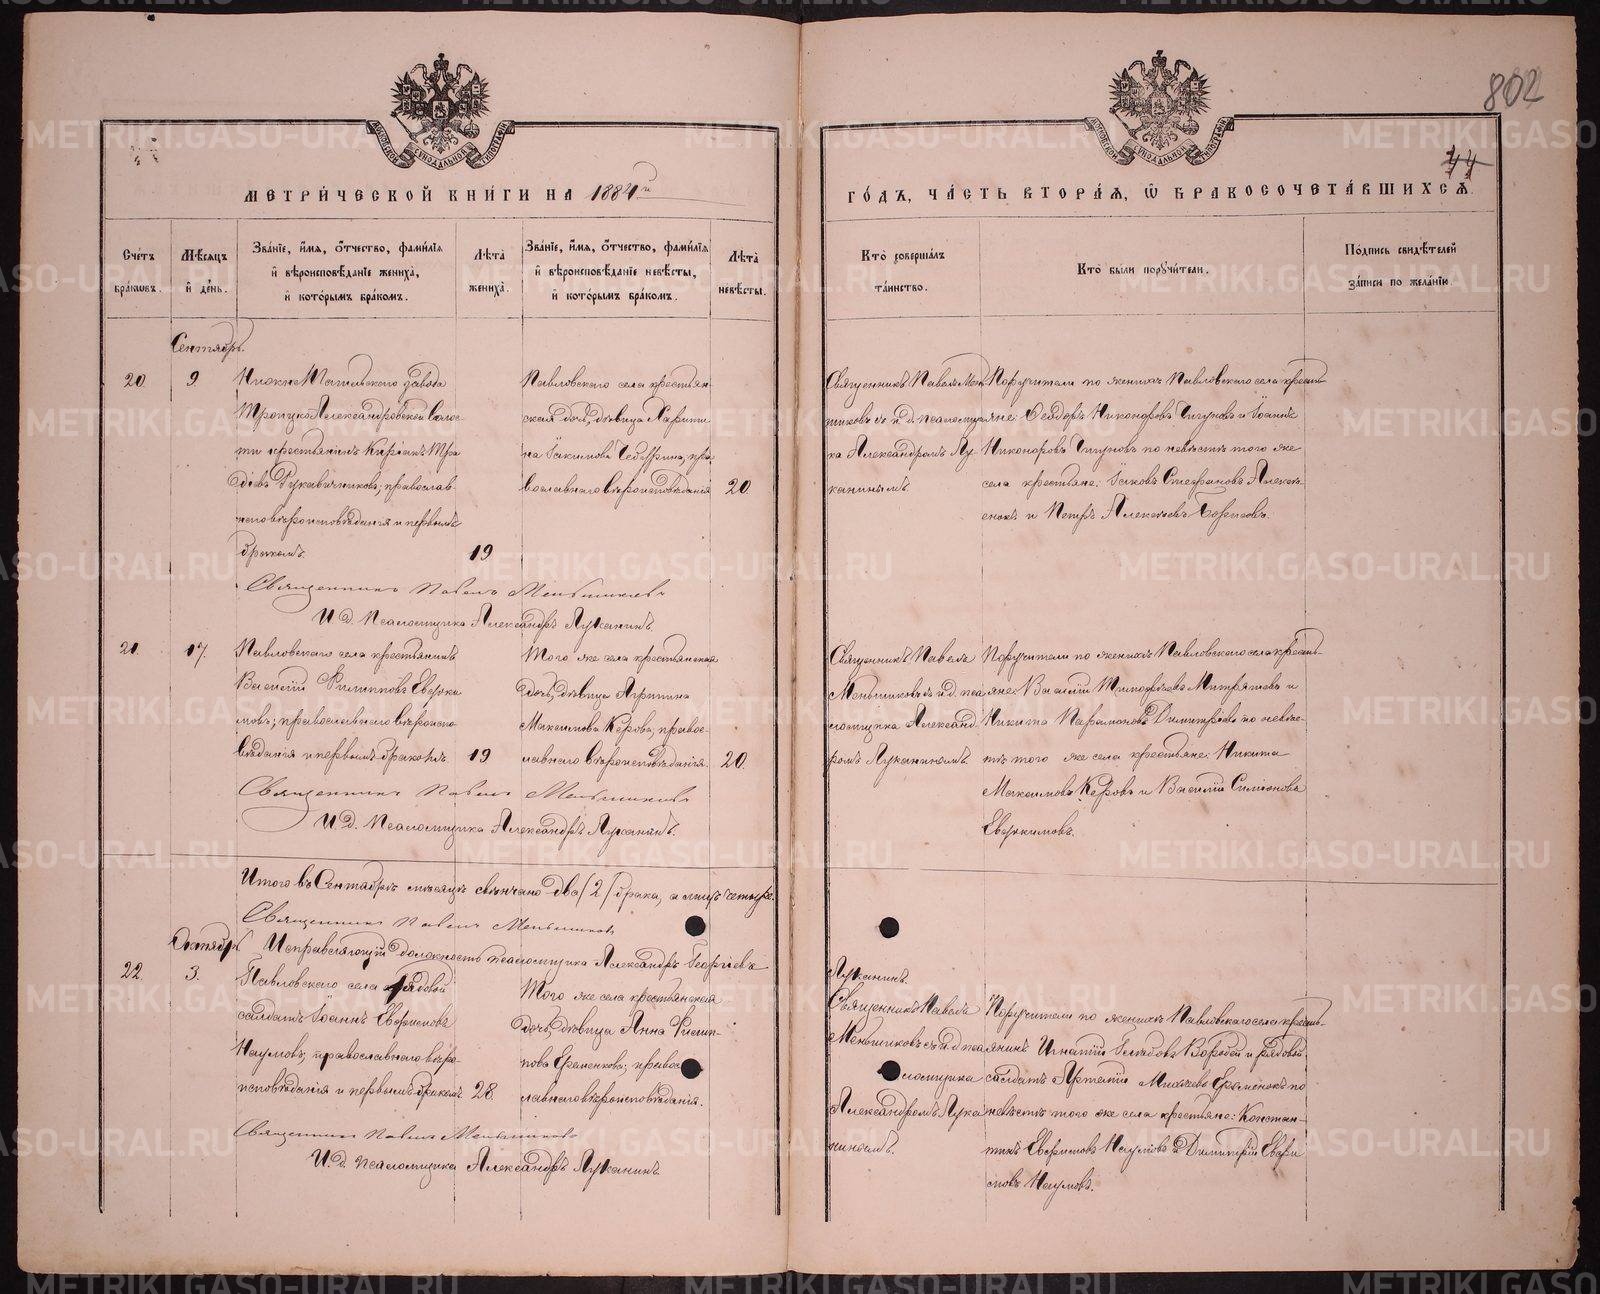 802
44
МОСКОВСКОЙ СѴНОДАЛЬНОЙ ТИПОГРАФІИ
МОСКОВСКОЙ СѴНОДАЛЬНОЙ ТИПОГРАФІИ
МЕТРИ́ЧЕСКОЙ КНИ́ГИ НА 1884й
ГО́ДЪ, ЧА́СТЬ ВТОРА́Я, Ѽ БРАКОСОЧЕТА́ВШИХСѦ.
Сче́тъ бра́кѡвъ.
Мѣ́сяцъ и҆ де́нь.
Зва́нїе, и҆́мѧ, ѻ҆́тчество, фами́лїѧ и҆ вѣроисповѣ́данїе жениха̀, и҆ кото́рымъ бра́комъ.
Лѣ́та жениха̀.
Зва́нїе, и҆́мѧ, ѻ҆́тчество, фами́лїѧ и҆ вѣроисповѣ́данїе невѣ́сты, и҆ кото́рымъ бра́комъ.
Лѣ́та невѣ́сты.
Кто̀ соверша́лъ та́инство.
Кто̀ бы́ли порꙋчи́тели.
По́дпись свидѣ́телей за́писи по жела́нїю.
Сентябрь.
20.
9
Нижне Тагильскаго завода
Троицко Александровской волос
ти крестьянинъ Киріакъ
Рукавичниковъ, православ
наго вѣроисповѣданія и первымъ
бракомъ.
19
Павловскаго села крестьян-
ская дочь, дѣвица
на Іакимова Чебурина, пра
вославнаго вѣроисповѣданія
20.
Священникъ Павелъ Мень
шиковъ съ и. д. псаломщи
ка Александромъ Лу
канинымъ.
Поручители по женихѣ Павловскаго села кресть
яне: Ѳеодоръ Никоноровъ Чигуновъ и Іоаннъ
Никоноровъ Чигуновъ по невѣстѣ того же
села крестьяне: Іаковъ Стефановъ Алексѣ
енокъ и Петръ Алексѣевъ Борисовъ.
Священникъ Павелъ Меньшиковъ
И. д. Псаломщика Александръ Луканинъ.
21.
17.
Павловскаго села крестьянинъ
Василій Филипповъ Евдоки
мовъ; православнаго вѣроиспо
вѣданія и первымъ бракомъ.
19
Того же села крестьянская
дочь, дѣвица Агрипина
Максимова Керова, правос
лавнаго вѣроисповѣданія.
20.
Священникъ Павелъ
Меньшиковъ съ и. д. пса
ломщика Александ
ромъ Луканинымъ.
Поручители по женихѣ Павловскаго села кресть
яне: Василій Тимофѣевъ Митряшевъ и
Никита Парамоновъ Димитріевъ по невѣс
тѣ того же села крестьяне: Никита
Максимовъ Керовъ и Василій Симіоновъ
Евдокимовъ.
Священникъ Павелъ Меньшиковъ
И. д. Псаломщика Александръ Луканинъ.
Итого въ Сентябрѣ мѣсяцѣ свѣнчано два /2/ брака, а лицъ четыре.
Священникъ Павелъ Меньшиковъ
Исправляющій должность псаломщика Александръ Георгіевъ
Луканинъ.
Октябрь
22.
3.
Павловскаго села рядовой
солдатъ Іоаннъ
Наумовъ; православнаго вѣро
исповѣданія и первымъ бракомъ.
28.
Того же села крестьянская
дочь, дѣвица Анна Филип-
пова Еременкова; правос
лавнаго вѣроисповѣданія.
Священникъ Павелъ
Меньшиковъ съ и. д. пса
ломщика
Александромъ Лука
нинымъ.
Поручители по женихѣ Павловскаго села кресть-
янинъ Игнатій Воробей и рядовой
солдатъ Артемій Михѣевъ Еременокъ по
невѣстѣ того же села крестьяне: Констан-
тинъ Наумовъ и Димитрій
Наумовъ.
Священникъ Павелъ Меньшиковъ
И. д. псаломщика Александръ Луканинъ.
METRIKI.GASO-URAL.RU